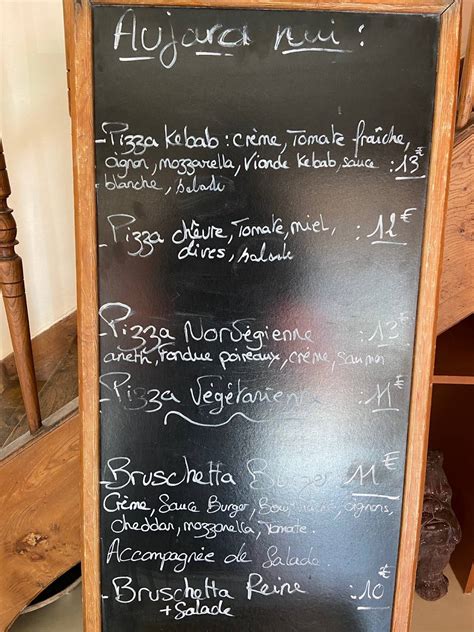 Aujourd'hui :
- Pizza Kebab : crème, Tomate fraîche,
oignon, mozzarella, Viande kebab, sauce : 13€
blanche, salade
- Pizza chèvre, Tomate, miel, : 12€
olives, salade
- Pizza Norvégienne : 13€
aneth, fondue poireaux, crème, saumon
- Pizza Végétarienne : 11€
- Bruschetta Burger 11€
Crème, Sauce Burger, oignons,
cheddar, mozzarella, Tomate.
Accompagnée de Salade.
- Bruschetta Reine : 10€
+ Salade